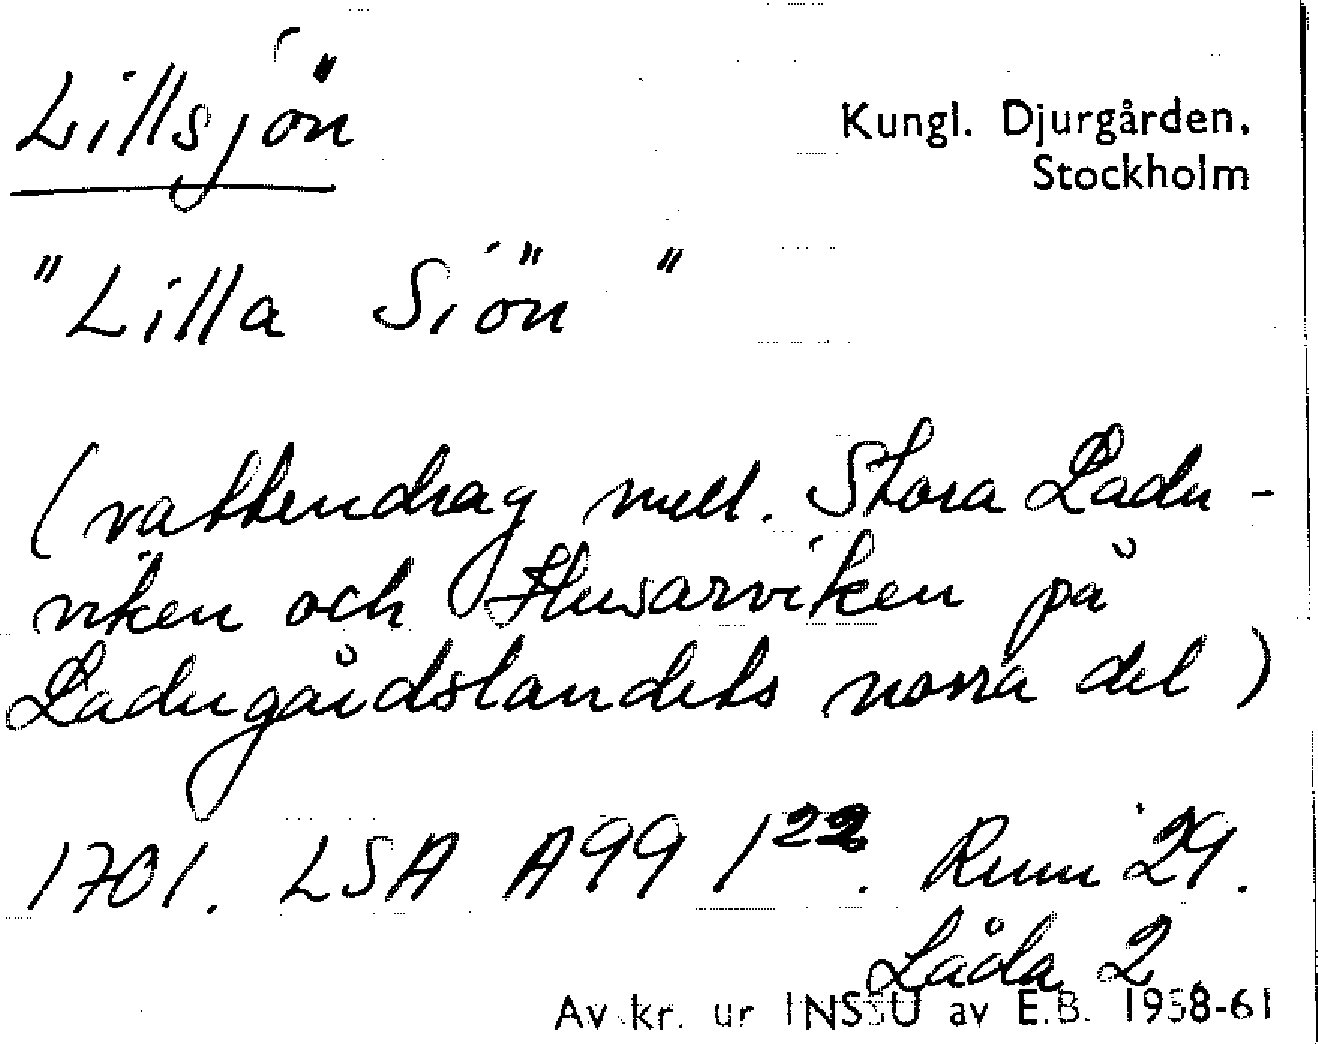 Lillsjön
Kungl. Djurgården.
Stockholm
"Lilla Siön"
(vattendrag mell. Stora Ladu-
viken och Husarviken på
Ladugårdslandets norra del)
1701. LSA A99 1²². Rum 29.
Låda 2
Av kr. ur INSSU av E.B. 1958-61